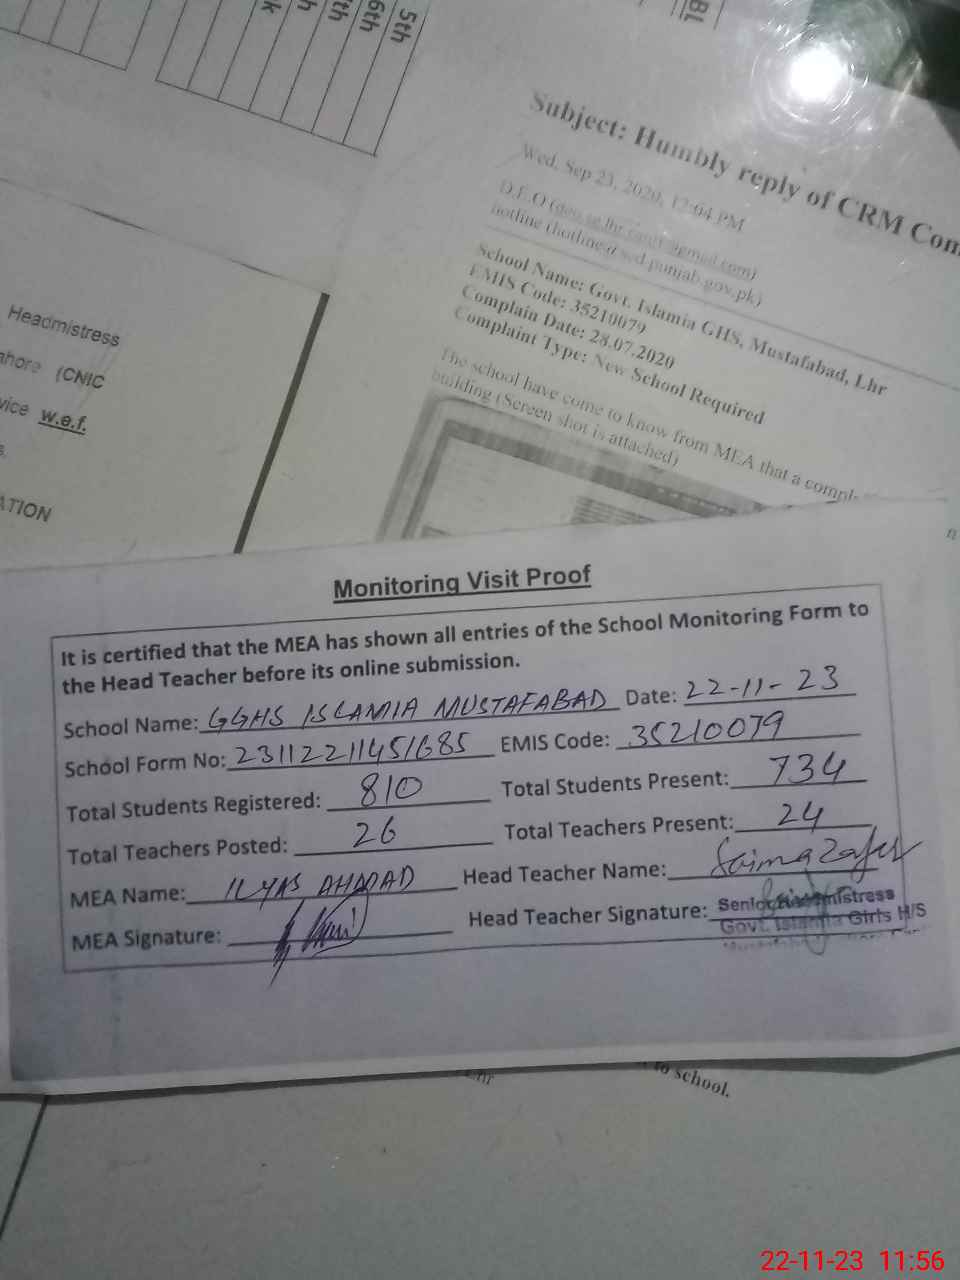 5th
6th
7th
h
k
BL
Subject: Humbly reply of CRM Com
Wed, Sep 23, 2020, 12:04 PM
D.E.O
hotline (hotline@sed.punjab.gov.pk)
School Name: Govt. Islamia GHS, Mustafabad, Lhr
EMIS Code: 35210079
Complain Date: 28.07.2020
Complaint Type: New School Required
The school have come to know from MEA that a compl
building (Screen shot is attached)
Headmistress
ahore (CNIC
vice w.e.f.
s.
ATION
n
Monitoring Visit Proof
It is certified that the MEA has shown all entries of the School Monitoring Form to
the Head Teacher before its online submission.
School Name: GGHS ISLAMIA MUSTAFABAD Date: 22-11-23
School Form No: 23112211451685 EMIS Code: 35210079
Total Students Registered: 810 Total Students Present: 734
Total Teachers Posted: 26 Total Teachers Present: 24
MEA Name: ILYAS AHMAD Head Teacher Name: Saima Zafer
MEA Signature: Head Teacher Signature: Senior Headmistress
Govt. Islamia Girls H/S
to school.
22-11-23 11:56